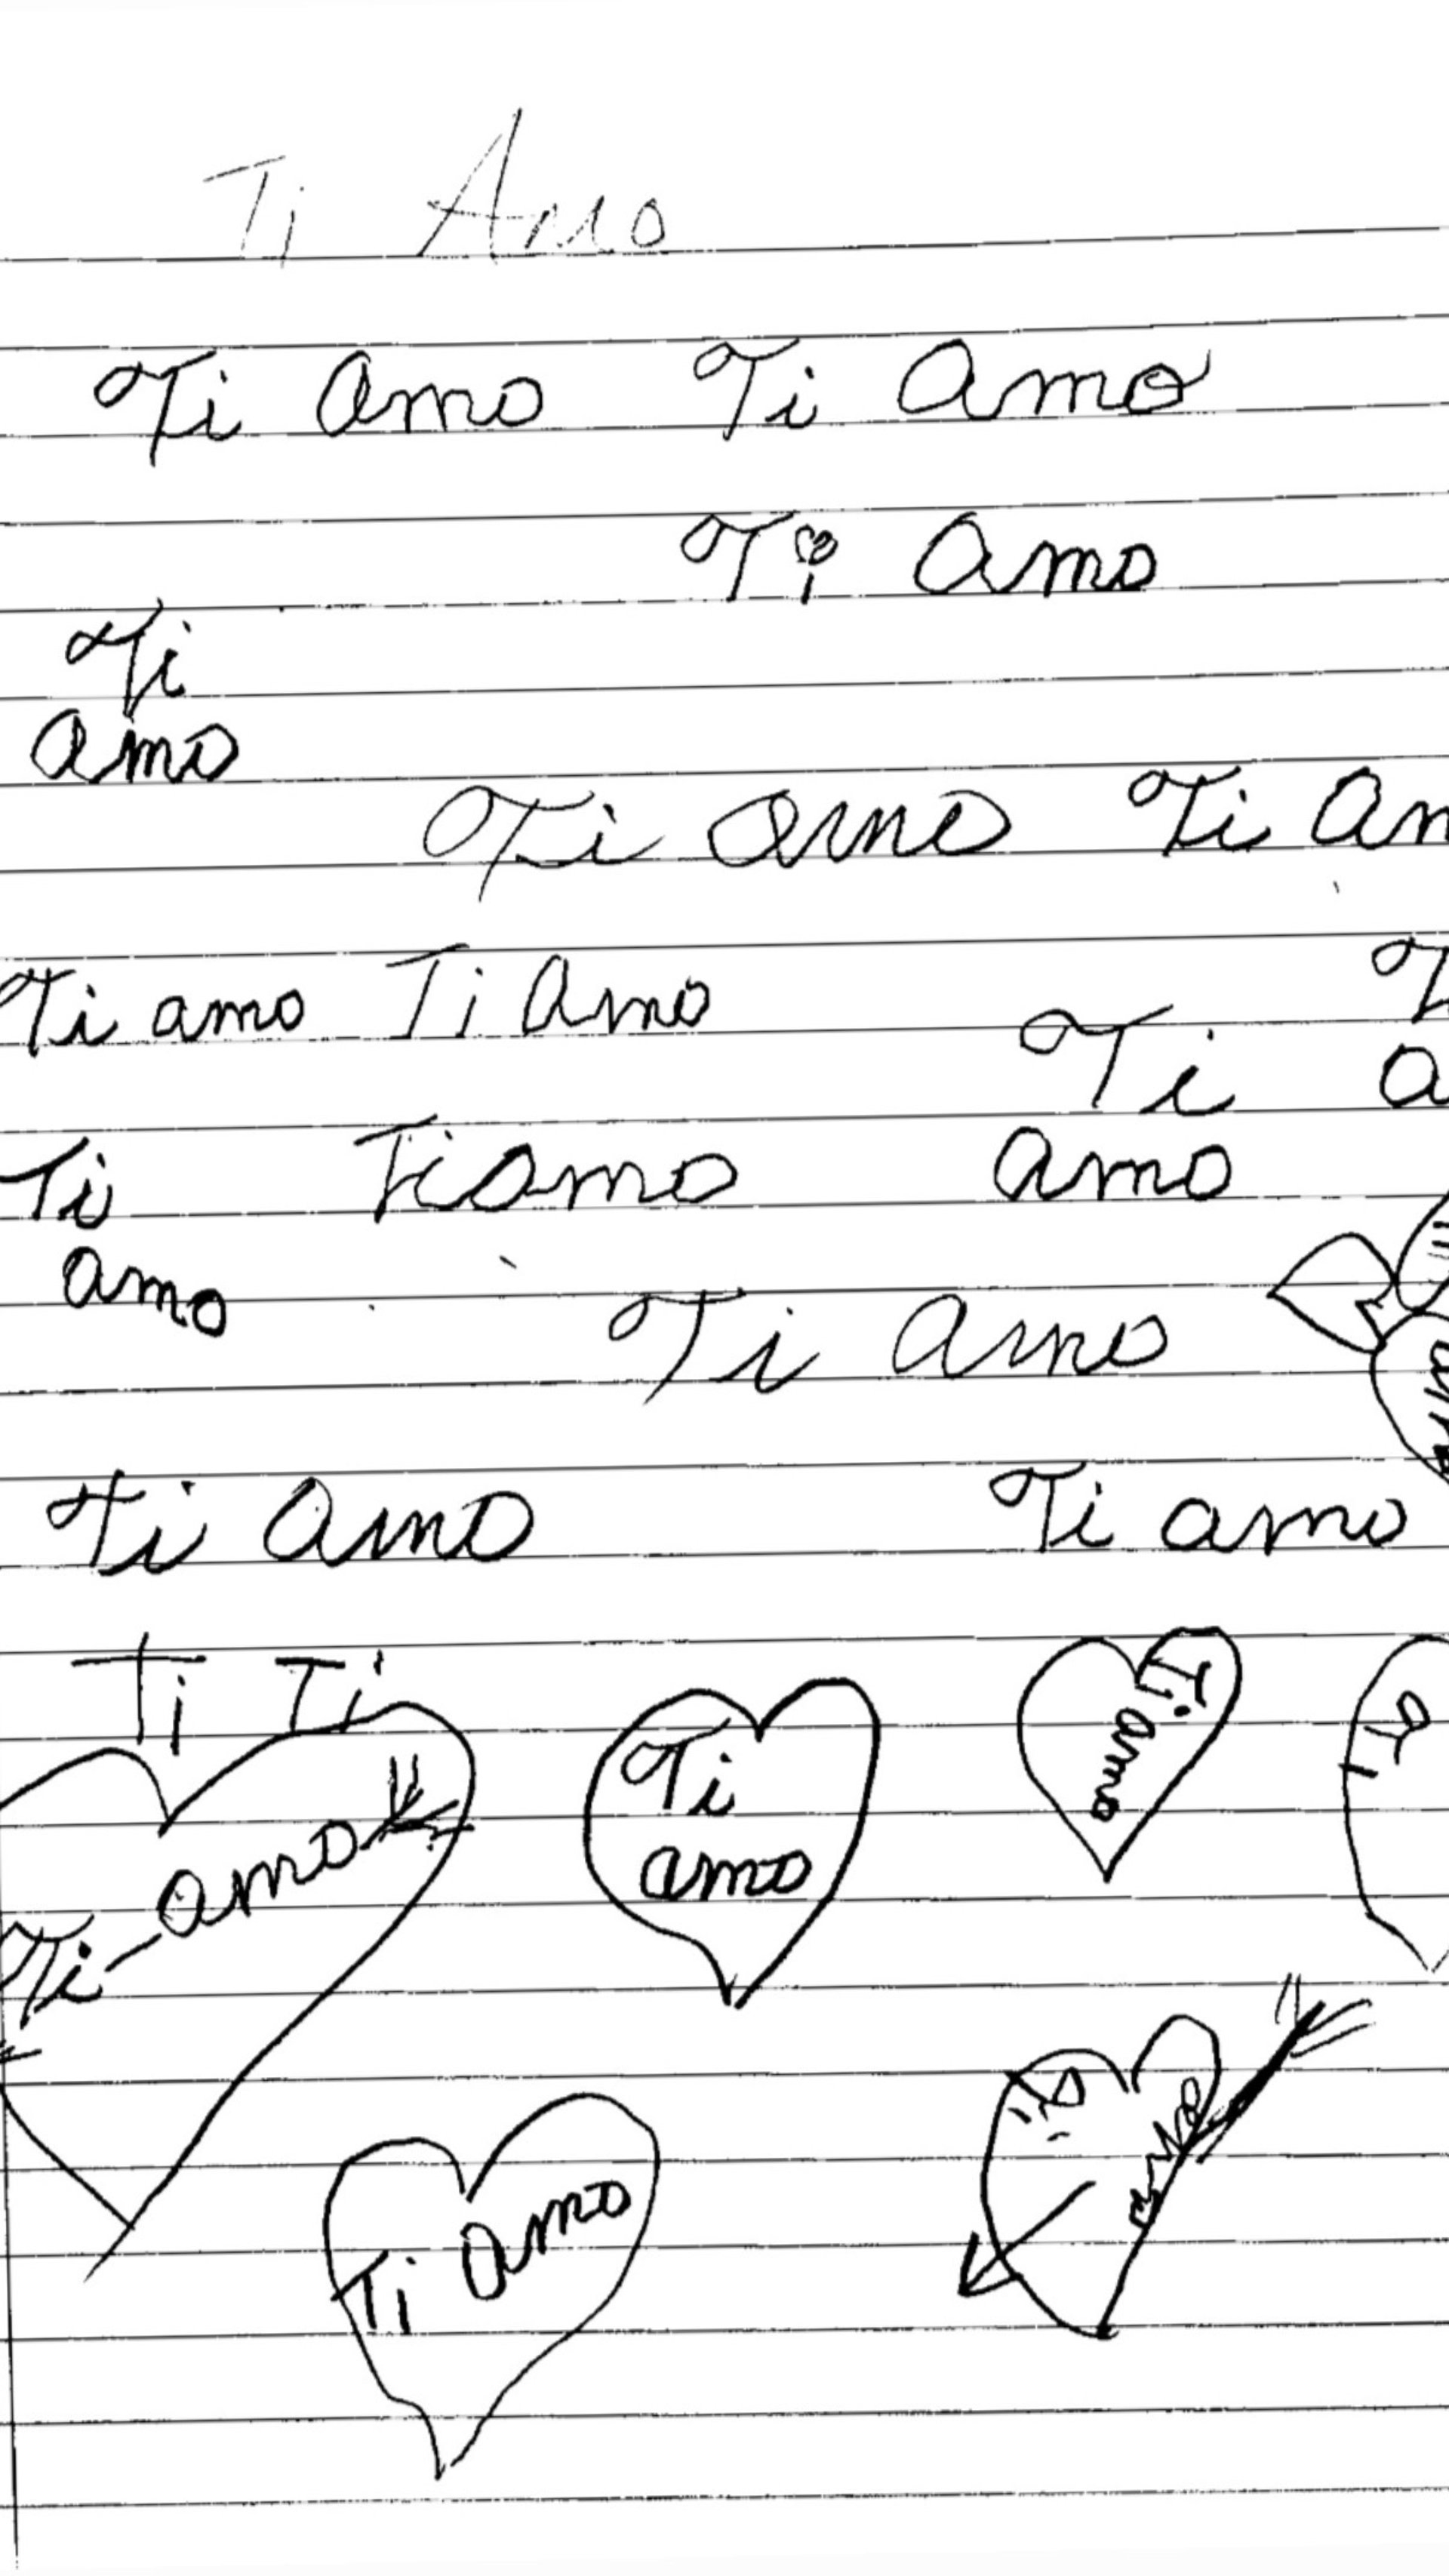 Ti Amo
Ti Amo Ti Amo
Ti Amo
Ti
amo
Ti amo Ti Am
Ti amo Ti Amo
Ti
amo
Ti
amo
Tiamo
Ti Amo
Ti Amo
Ti amo
Ti Ti
Ti amo
Ti
amo
Ti amo
Ti
Ti amo
amo